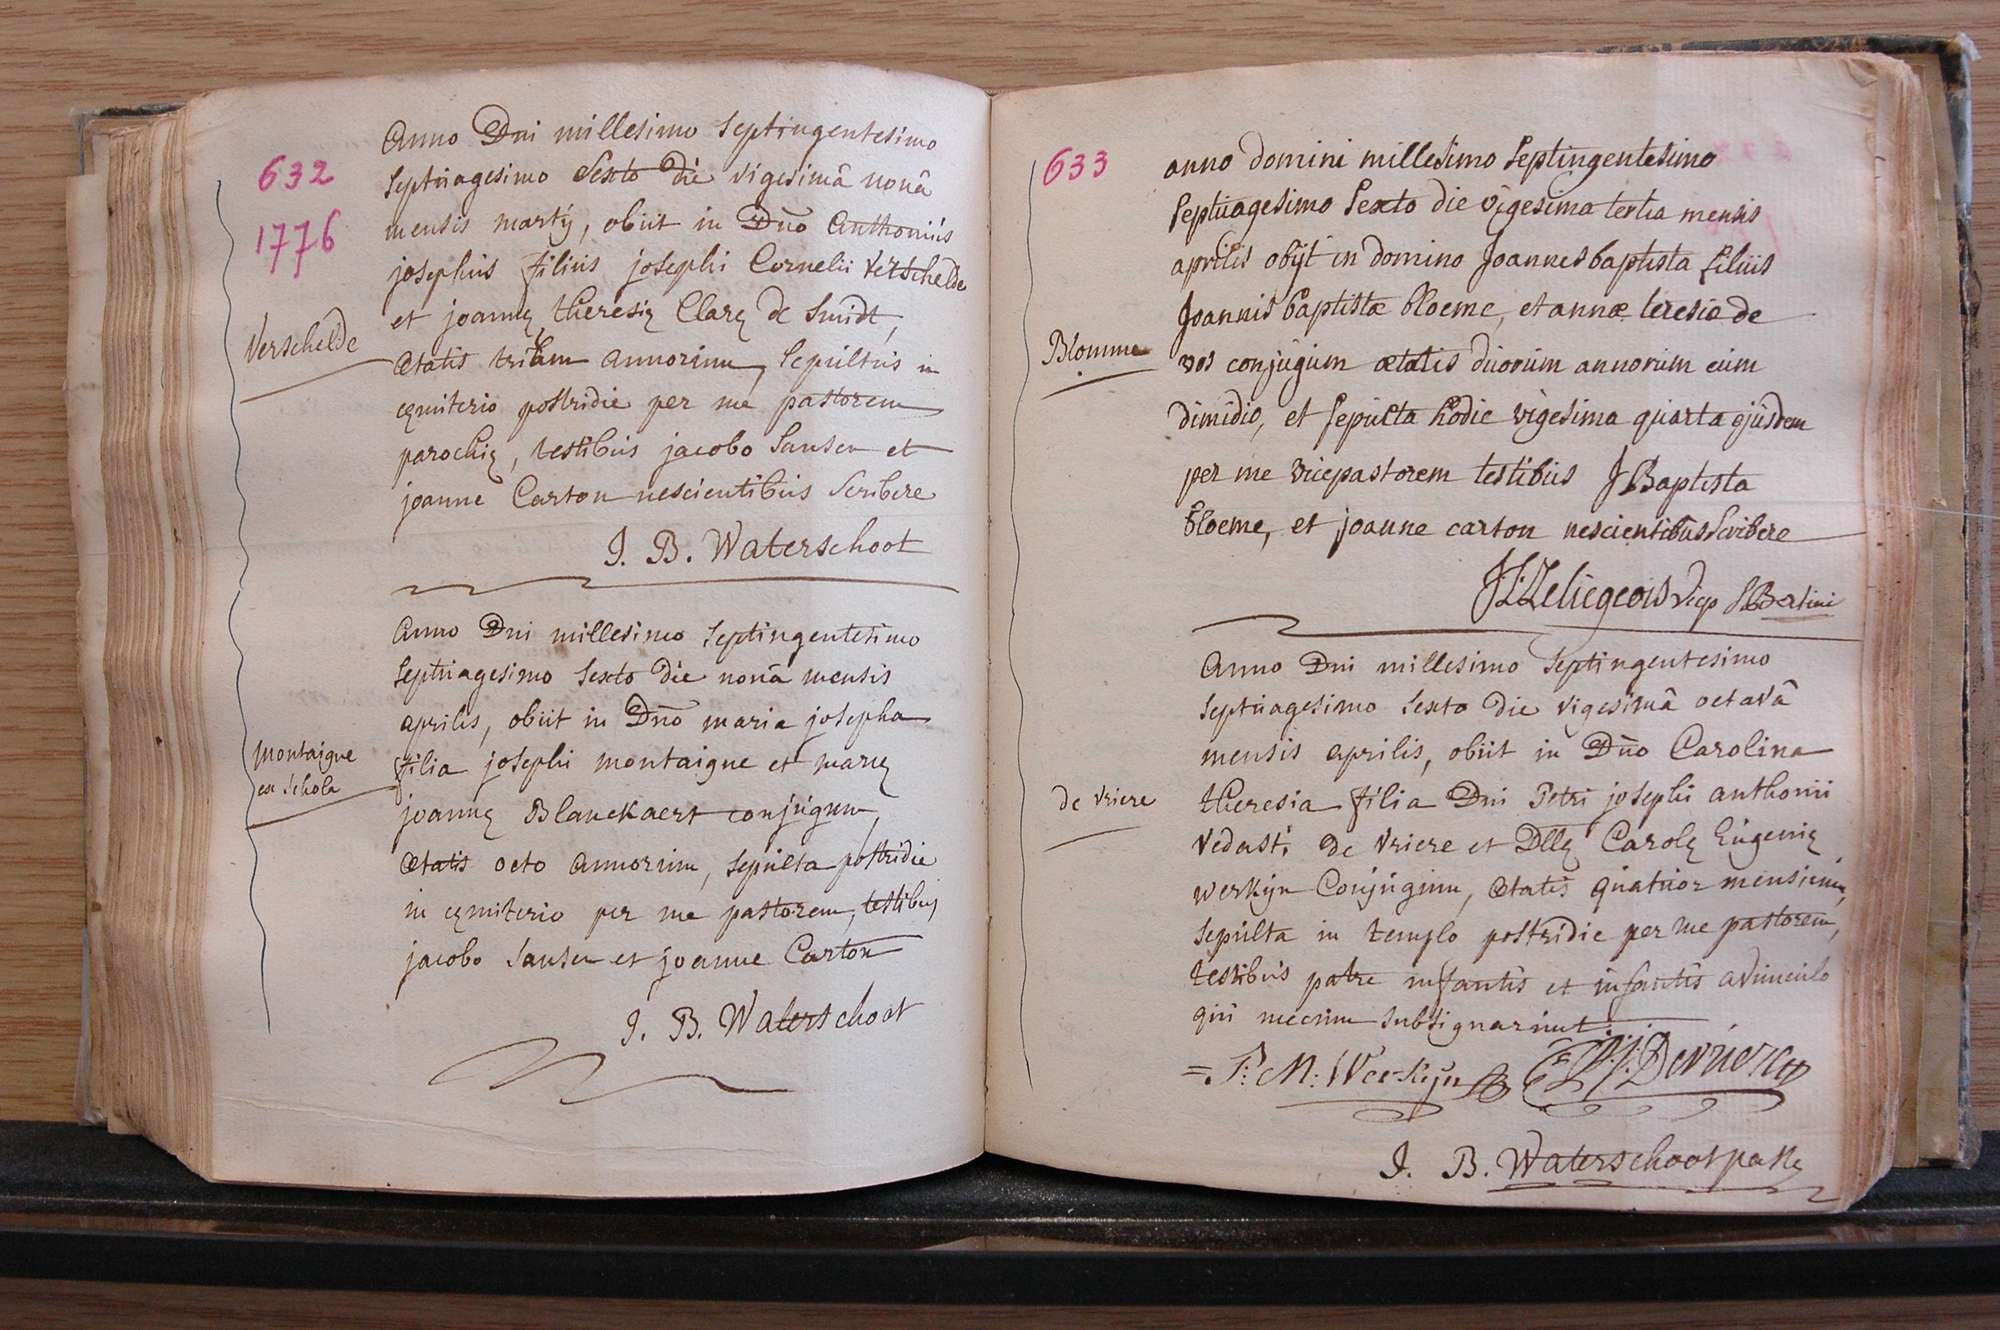 632
1776
Anno Dni millesimo Septingentesimo
Septuagesimo Sexto die vigesimâ nonâ
mensis martÿ, obiit in Dño Anthonius
josephus filius josephi Cornelii Verschelde
et joannę theresię Clarę de Smidt,
Verschelde
ætatis trium annorum, Sepultus in
cęmiterio postridie per me pastorem
parochię, testibus jacobo Sansen et
joanne Carton nescientibus Scribere
J. B. Waterschoot
Anno Dni millesimo Septingentesimo
Septuagesimo Sexto die nonâ mensis
aprilis, obiit in Dño maria josepha
montaigne
ex Schola
filia josephi montaigne et marię
joannę Blanckaert conjugum,
ætatis octo annorum, sepulta postridie
in cęmiterio per me pastorem, testibus
jacobo Sansen et joanne Carton
J. B. Waterschoot
633
anno domini millesimo Septingentesimo
Septuagesimo Sexto die vigesima tertia mensis
aprilis obÿt in domino Joannes baptista filius
Joannis baptistæ bloeme, et annæ teresiæ de
Blomme
vos conjugum ætatis duorum annorum cum
dimidio, et sepulta hodie vigesima quarta ejusdem
per me vicepastorem testibus J Baptista
bloeme, et joanne carton nescientibus Scribere
J:L:Leliegeois vicep S Bertini
Anno Dni millesimo Septingentesimo
Septuagesimo Sexto die vigesimâ octavâ
mensis aprilis, obiit in Dño Carolina
de Vriere
theresia filia Dni Petri josephi anthonii
Vedasti de Vriere et Dllę Carolę Eugenię
Werkÿn Conjugum, ætatis quatuor mensium,
Sepulta in templo postridie per me pastorem,
testibus patre infantis et infantis avunculo
qui mecum subsignarunt
P: M: Werkÿn P:J: Devriere
J. B. Waterschoot past.